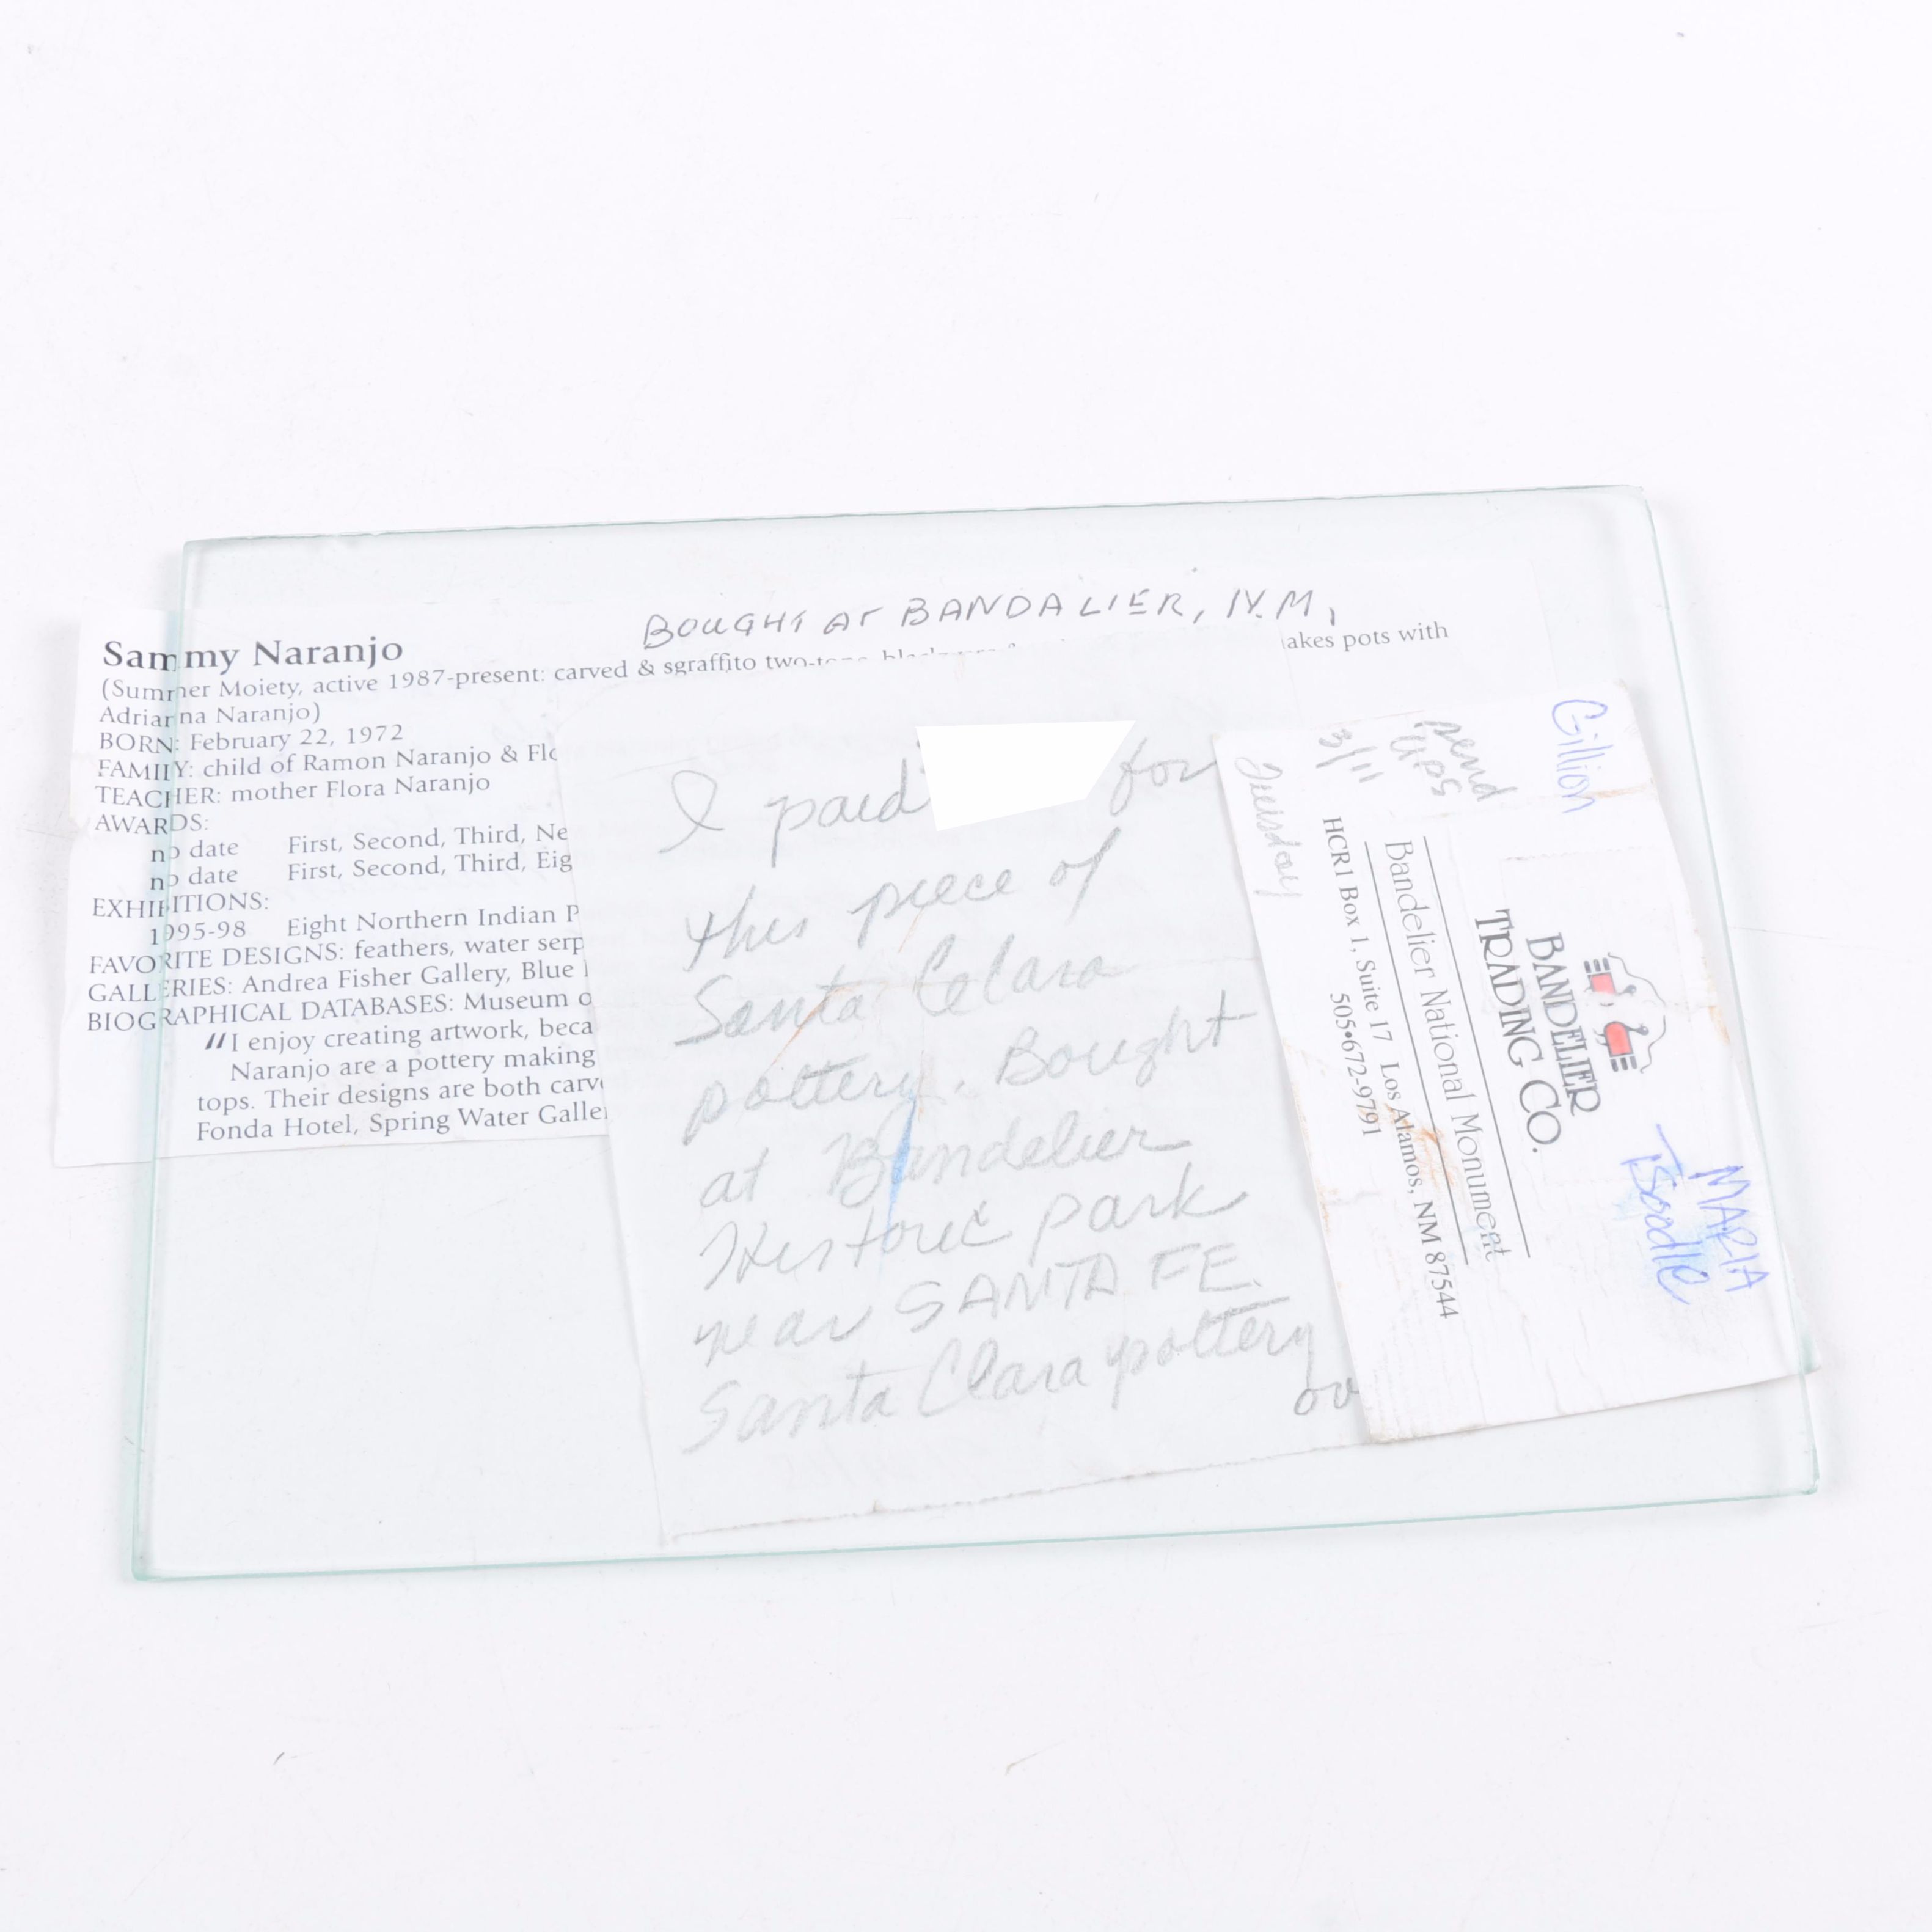 BOUGHT AT BANDALIER, N.M.,
Sammy Naranjo
(Summer Moiety, active 1987-present: carved & sgraffito akes pots with
Adrianna Naranjo)
BORN: February 22, 1972
FAMILY: child of Ramon Naranjo & Flo
TEACHER: mother Flora Naranjo
AWARDS:
no date First, Second, Third, Ne
no date First, Second, Third, Eig
EXHIBITIONS:
1995-98 Eight Northern Indian P
FAVORITE DESIGNS: feathers, water serp
GALLERIES: Andrea Fisher Gallery, Blue
BIOGRAPHICAL DATABASES: Museum o
"I enjoy creating artwork, beca
Naranjo are a pottery making
tops. Their designs are both carv
Fonda Hotel, Spring Water Galle
I paid for
this piece of
Santa Clara
pottery. Bought
at Bandelier
Historic park
near SANTA FE.
Santa Clara pottery
ov
Gillion
send
UPS
3/11
MARIA
BANDELIER
TRADING CO.
Bandelier National Monument
HCR1 Box 1, Suite 17 Los Alamos, NM 87544
505•672-9791